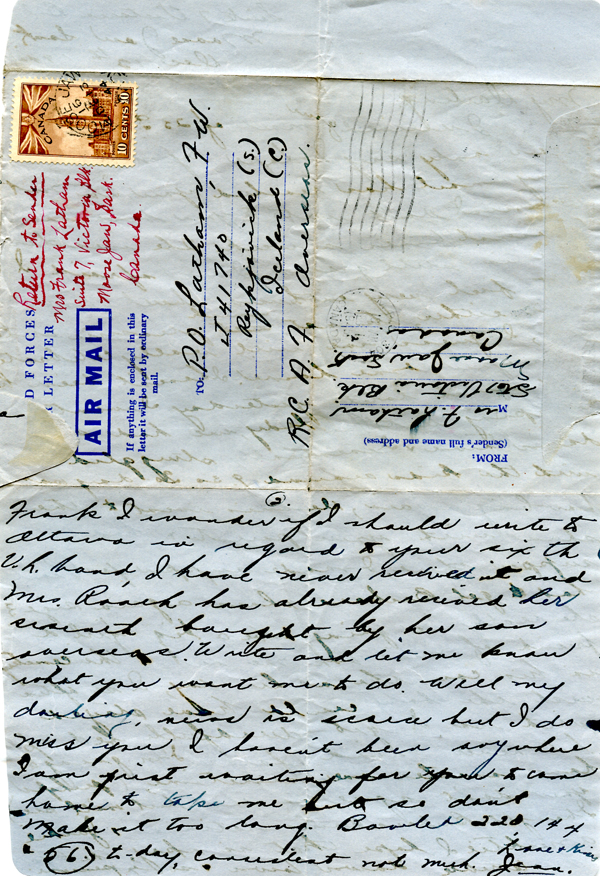 CANADA
10 CENTS 10
Return to Sender
Mrs Frank Latham
Suite 7, Victoria, Blk
Moose Jaw, Sask.
Canada.
D FORCES
LETTER
AIR MAIL
If anything is enclosed in this
letter it will be sent by ordinary
mail.
TO: P.O. Latham, F W.
J 41740
Reykjivick (S)
Iceland (C)
R.C.A.F. Overseas.
FROM:
(Sender's full name and address)
Mrs F. Latham
St 7 Victoria Blk.
Moose Jaw, Sask
Canada
Frank I wonder if I should write to
Ottawa in regard to your six th
Vh. bond, I have never received it and
Mrs. Roach has already recived her
sixseth bought by her son
overseas. Write and let me know
what you want me to do. Well my
darling, news is scarce but I do
miss you, I haven't been anywhere
I am just waiting for you to come
home to take me out so don't
make it too long. Bowled 220 144
(56) t-day, consedent not much. Jean.
Love & Kisses